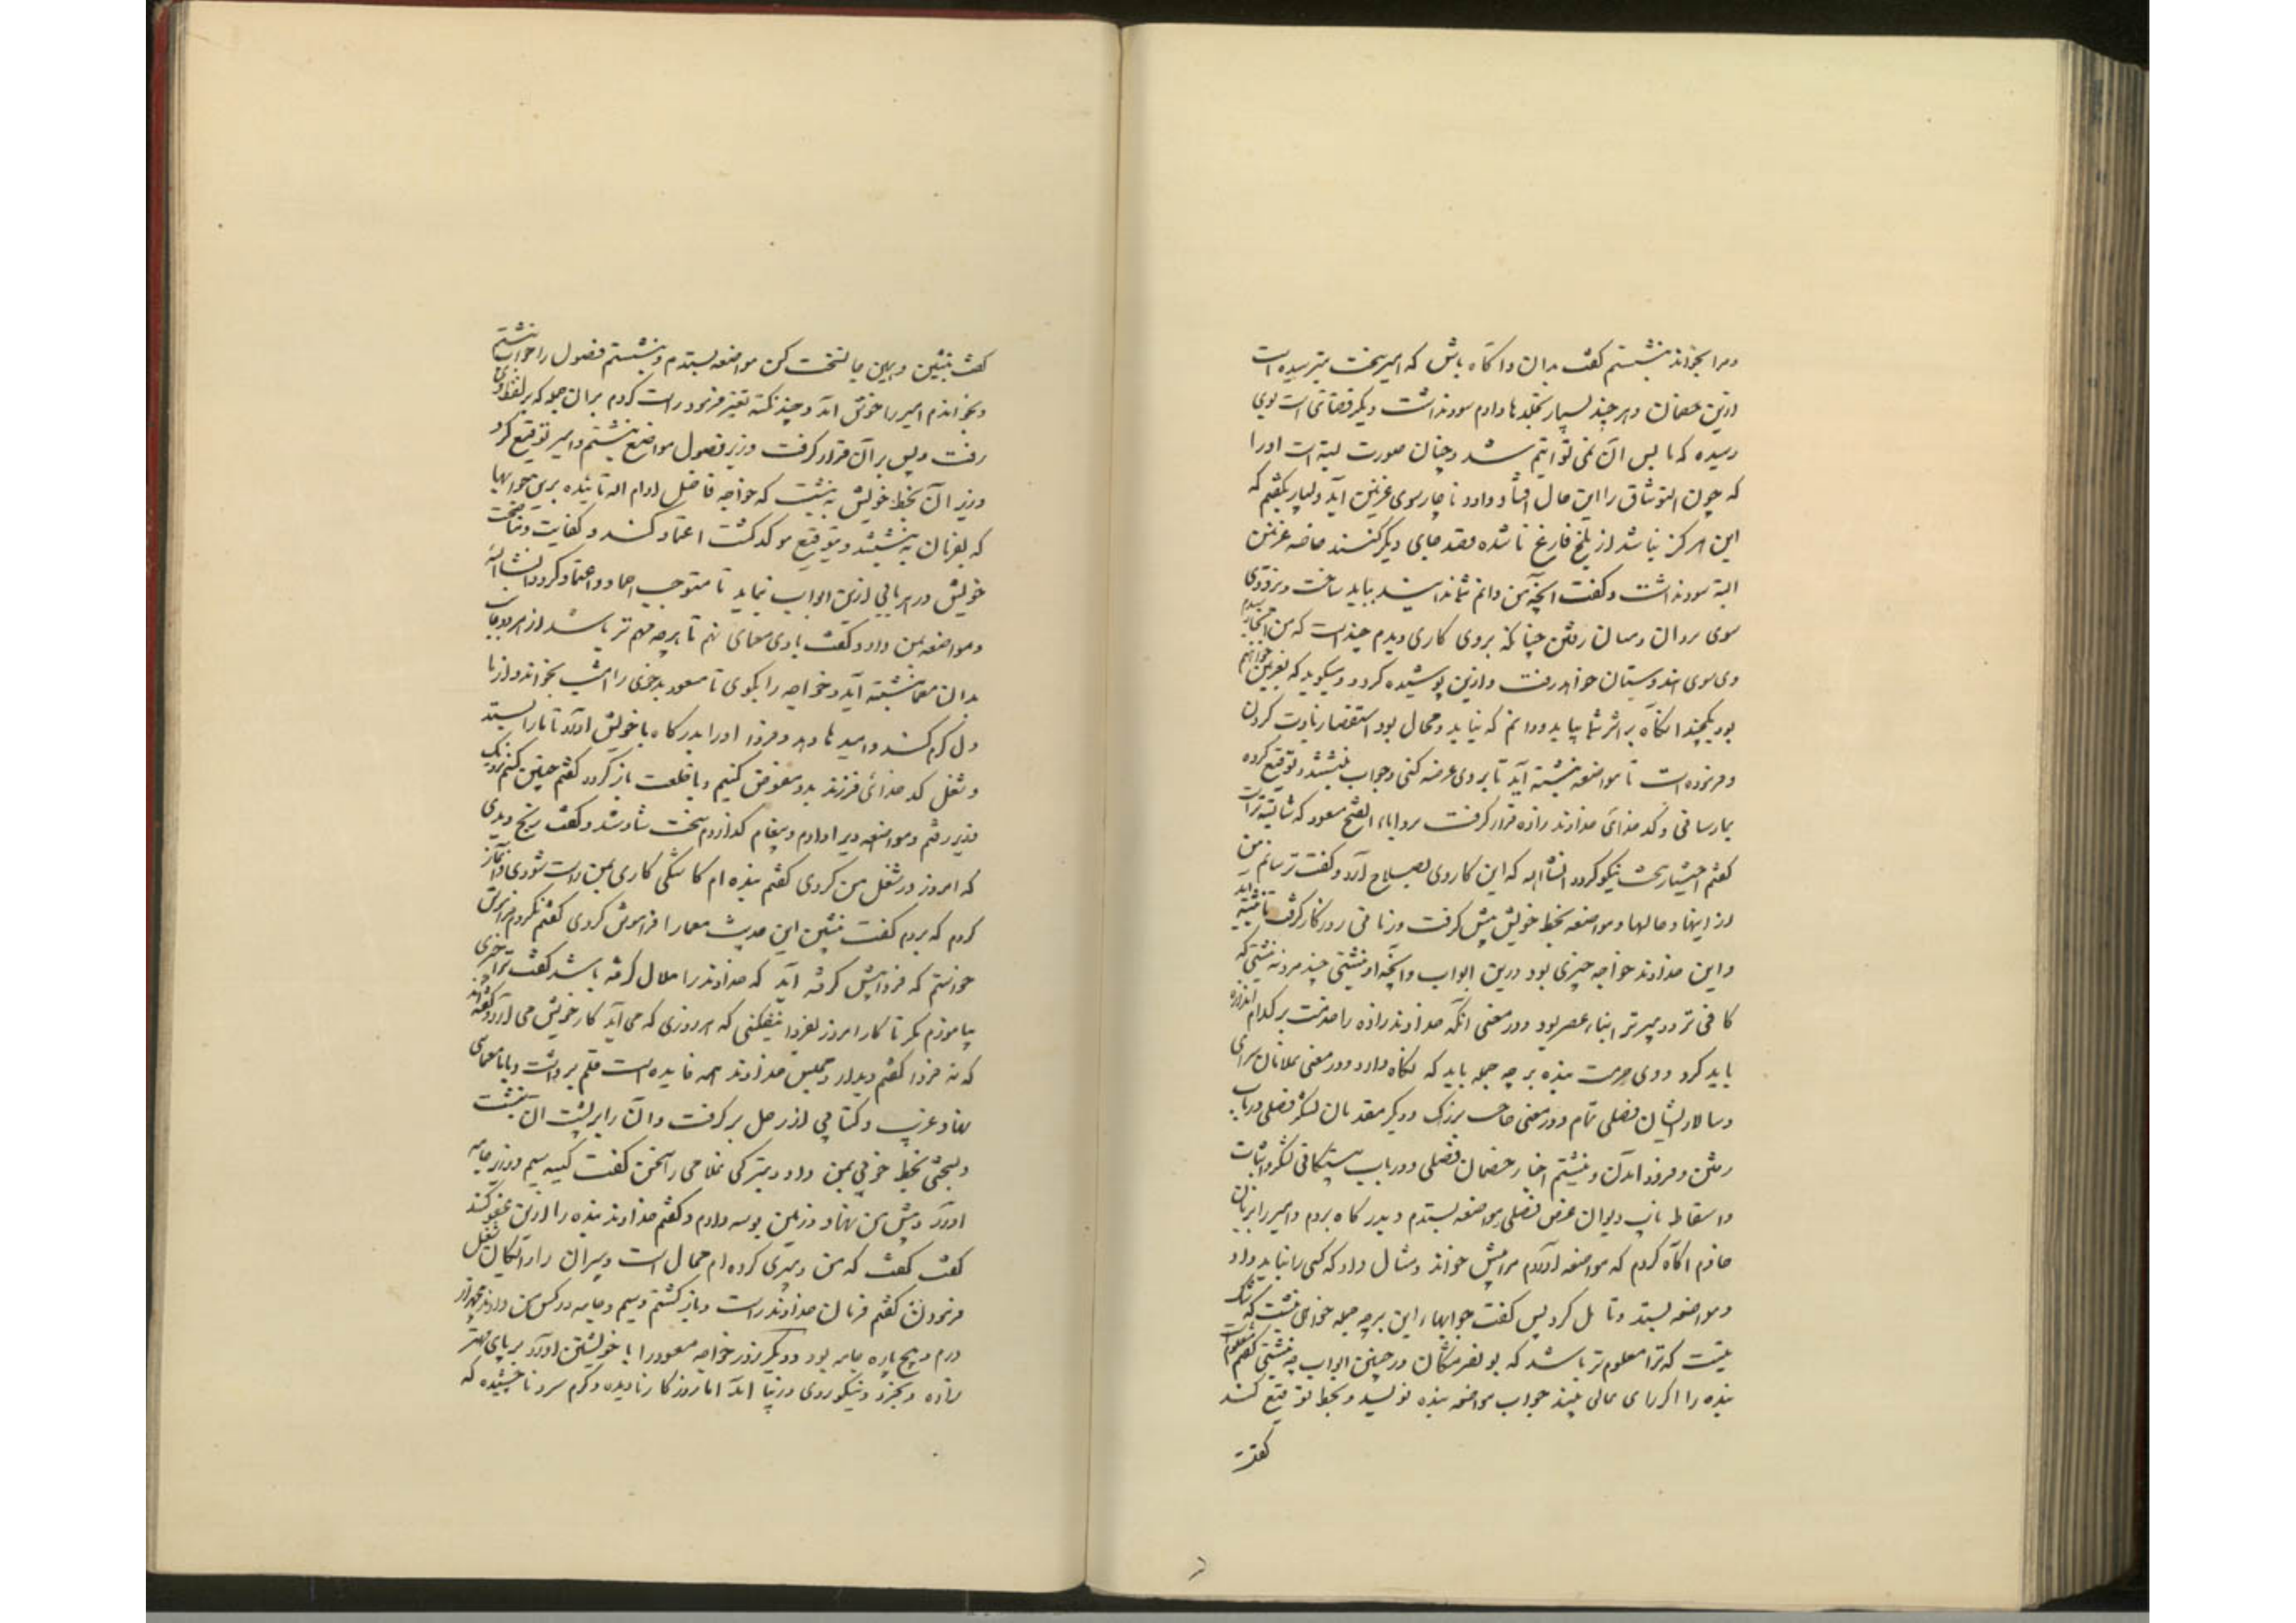 ومرا بخواند بنشستم گفت بدان واگاه باش که امیر سخت بترسیده است
ازین خصمان و هر چند بسیار تجلدها دادم سود نداشت و دیگر قضائی است بوی
رسیده که ما پس آن نمی توانیم شد و چنان صورت بسته است اورا
که چون التونتاق را این حال افتاد و داود ناچار سوی غزنین آید و بسیار بگفتم که
این هرگز نباشد از بلخ فارغ ناشده قصد جای دیگر کنند خاصه غزنین
البته سود نداشت و گفت آنچه من دانم شما ندانید بباید ساخت و بزودی
سوی روان و سان رفتن چنانکه بروی کاری دیدم چنداست که من
وی سوی هندوستان خواهد رفت و ازین پوشیده گردد و میگوید که بغزنین خواهیم
بود یکچند آنگاه بر اثر شما بیاید و دانم که نیاید و محال بود استقصا زیادت کردن
و فرموده است تا مواضعه نبشته آید تا بروی عرضه کنی و جواب نبشته و توقیع کرده
بیار ساقی و کدخدائی خداوند زاده قرار گرفت بر بوالفتح مسعود که شایسته تراست
گفتم اختیار سخت نیکو کرد ان شاء الله که این کار وی بصلاح آرد و گفت ترسانم من
از اینها و حالها و مواضعه بخط خویش پیش گرفت و زمانی روزگار گرفت تا نبشته آید
و این خداوند خواجه چیزی بود درین ابواب و آنچه او نبشتی چند مرد نه نبشتی که
کافی تر و دبیرتر ابناء عصر بود و در معنی آنکه خداوند زاده را خدمت بر کدام اندازه
باید کرد و وی حرمت بنده بر چه جمله باید که نگاه دارد و در معنی غلامان سرای
و سالار ایشان فصلی تمام و در معنی حاجب بزرگ و دیگر مقدمان لشکر فصلی در باب
رفتن و فرود آمدن و نبشتم اخبار خصمان فصلی و در باب بیستگانی لشکر و اثبات
و اسقاط نایب دیوان عرض فصلی مواضعه بستدم و بدرگاه بردم و امیر را بزبان
خادم آگاه کردم که مواضعه آوردم مرا پیش خواند و مثال داد که کسی را نباید داد
و مواضعه بستد و تأمل کرد پس گفت جوابهاء این بر چه جمله خواهی نبشت که شک
نیست که ترا معلوم تر باشد که بونصر مشکان در چنین ابواب چه نبشتی گفتم معلوم است
بنده را اگر رای عالی بیند جواب مواضعه بنده نویسد و بخط توقیع کند
گفت
گفت بنشین و همین جا نسخت کن مواضعه بستدم و بنشستم فصول را جواب نبشتم
و بخواندم امیر را خوش آمد و چند نکته تغییر فرمود راست کردم بران جمله که بر لفظ وی
رفت و پس بر آن قرار گرفت و زیر فصول مواضعه نبشتم و امیر توقیع کرد
و زیر آن بخط خویش نبشت که خواجه فاضل ادام الله تائیده برین جوابها
که بفرمان نبشتند و بتوقیع موکد گشت اعتماد کند و کفایت و مناصحت
خویش در هر بابی ازین ابواب نماید تا مستوجب احماد و اعتماد گردد انشاالله
و مواضعه بمن داد و گفت با وی معمای نه تا هر چه مهم تر باشد از هر دو جانب
بدان معما نبشته آید و خواجه را بگوی تا مسعود برخی را امشب بخواند و از ما
دل گرم کند و امیدها دهد و فردا او را بدرگاه با خویش آورد تا ما را ببیند
و شغل کدخدائی فرزند بدو مفوض کنیم و با خلعت باز گردد گفتم چنین کنم نزدیک
وزیر رفتم و مواضعه ویرا دادم و پیغام گذاردم سخت شاد شد و گفت رنج دیدی
که امروز در شغل من کردی گفتم بنده ام کاشکی کاری بمن راست شودی و آغاز
کردم که بردم گفت بنشین این حدیث معما را فراموش کردی گفتم نکردم فراموش
خواستم که فردا پیش گرفته آید که خداوند را ملال گرفته باشد گفت ترا چیزی
بیاموزم نگر تا کار امروز بفردا نیفکنی که هر روزی که می آید کار خویش می آرد و گفته اند
که نه فردا گفتم دیدار و مجلس خداوند همه فایده است قلم برداشت و با ما معمائی
نهاد غریب و کتابی از رحل بر گرفت و آن را بر پشت آن نبشت
و نسختی بخط خوبی بمن داد و بترکی غلامی را سخن گفت کیسه سیم و زر و جامه
آورد و پیش من نهاد و زمین بوسه دادم و گفتم خداوند بنده را ازین عفو کند
گفت گفت که من دبیری کرده ام محال است دبیران را رایگان شغل
فرمودن گفتم فرمان خداوند راست و باز گشتم و سیم و جامه در کس من دادند
درم و پنج پاره جامه بود و دیگر روز خواجه مسعود را با خویشتن آورد بر پای مهتر
زاده و بخرد و نیکو روی و زیبا اما روزگار نادیده و گرم و سرد ناچشیده که